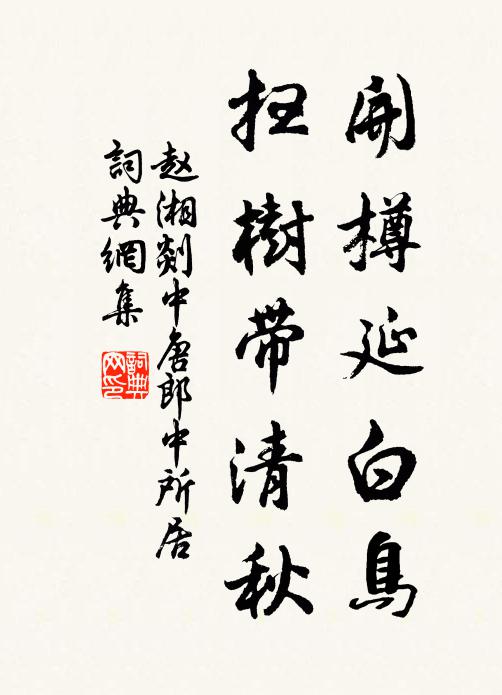 開樽延白鳥
扫樹带清秋
赵湘剡中唐郎中所居
詞典網集
詞典
网印